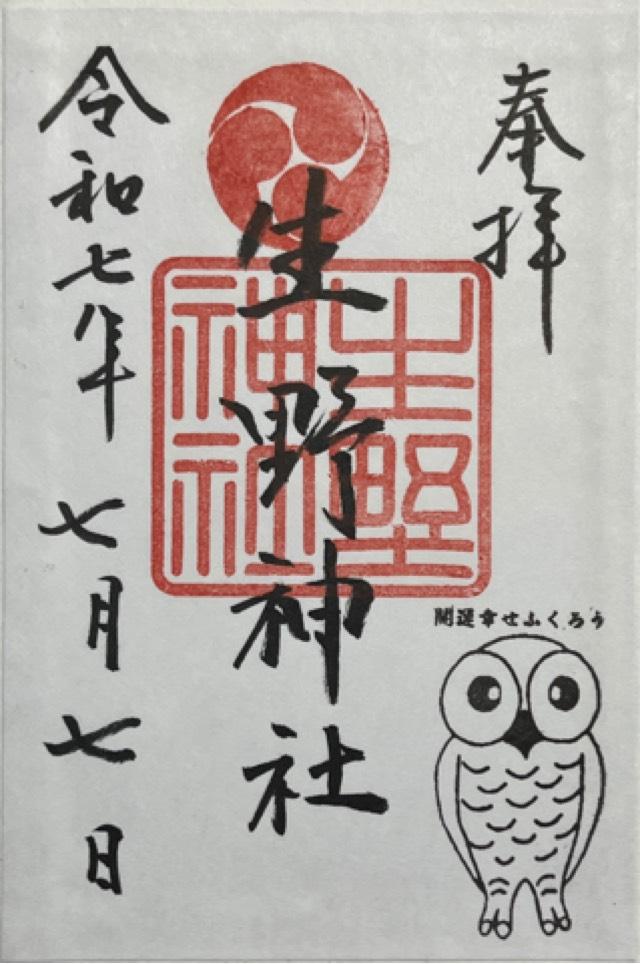 奉拝
生野神社
生野
神社
開運幸せふくろう
令和七年七月七日